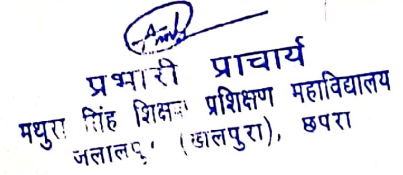 प्रभारी प्राचार्य
मथुरा सिंह शिक्षक प्रशिक्षण महाविद्यालय
जलालपुर (खालपुरा), छपरा